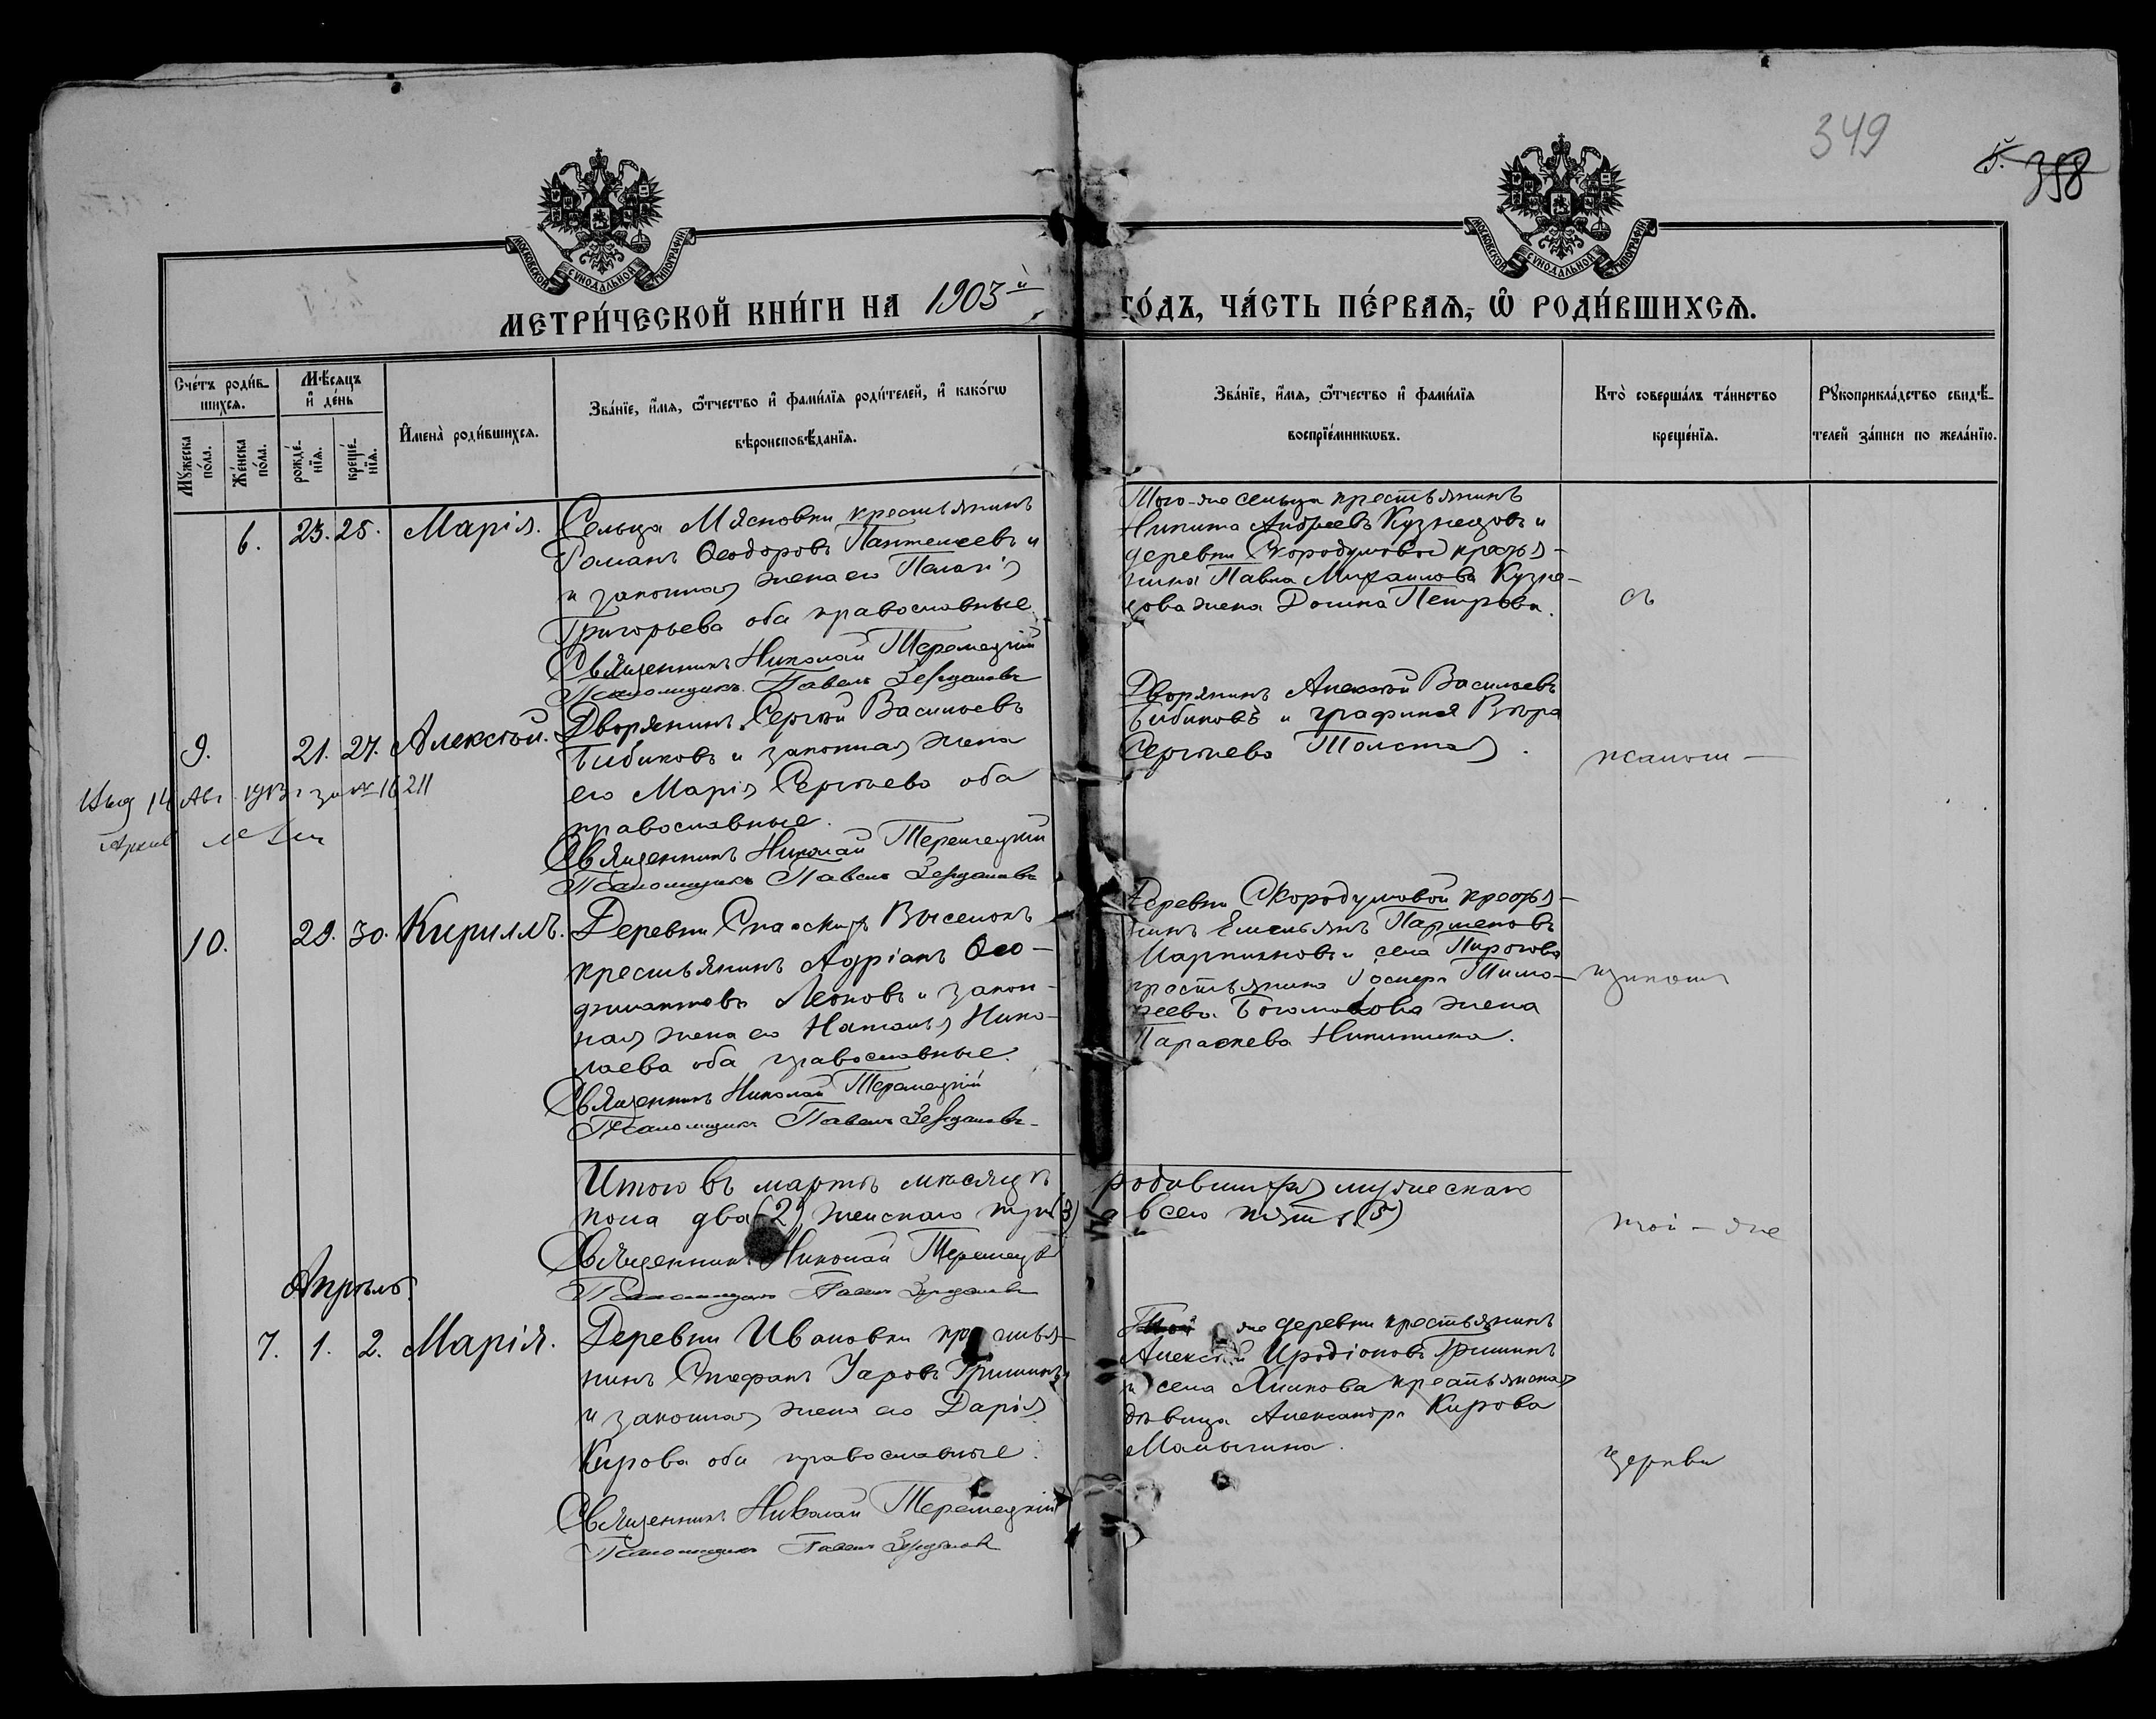 349
5. 358
МОСКОВСКОЙ СУНОДАЛЬНОЙ ТИПОГРАФІИ
МОСКОВСКОЙ СУНОДАЛЬНОЙ ТИПОГРАФІИ
МЕТРИ́ЧЕСКОЙ КНИ́ГИ НА 1903й ГО́ДЪ, ЧА́СТЬ ПЕ́РВАѦ, Ѡ РОДИ́ВШИХСѦ.
Сче́тъ роди́в-
шихся.
Мѣ́сяцъ
и҆ де́нь
Мꙋ́жеска
по́ла.
Же́нска
по́ла.
рожде́-
нїя.
креще́-
нїя.
И҆мена̀ роди́вшихся.
Зва́нїе, и҆́мя, ѻ҆́тчество и҆ фами́лїя роди́телей, и҆ како́гѡ
вѣроисповѣ́данїя.
Зва́нїе, и҆́мя, ѻ҆́тчество и҆ фами́лїя
воспрїе́мникѡвъ.
Кто̀ соверша́лъ та́инство
креще́нїя.
Рꙋкоприкла́дство свидѣ́-
телей за́писи по жела́нїю.
6. 23. 25. Марія.
Сельца Мясновки крестьянинъ
Романъ Ѳеодоровъ Пантелеевъ и
и законная жена его Пелагія
Григорьева оба православные
Священникъ Николай
Псаломщикъ Павелъ
Того-же сельца крестьянинъ
Никита Андреевъ Кузнецовъ и
деревни Скородумовой кресть-
янина Павла Михаилова Кузне-
цова жена Домна Петрова.
съ
9. 21. 27. Алексѣй.
Дворянинъ Сергѣй Васильевъ
Бибиковъ и законная жена
его Марія Сергѣева оба
православные.
Священникъ Николай
Псаломщикъ Павелъ
Дворянинъ Алексѣй Васильевъ
Бибиковъ и графиня Вѣра
Сергѣева Толстая.
псалом-
14 Авг. 1913 г за № 16211
10. 29. 30. Кириллъ.
Деревни Спасскихъ Выселокъ
крестьянинъ Адріанъ Ѳео-
Леоновъ и закон-
ная жена его Наталья Нико-
лаева оба православные.
Священникъ Николай
Псаломщикъ Павелъ
Деревни Скородумовой кресть-
янинъ Емельянъ Парменовъ
и села Пирогова
крестьянина Тимо-
феева жена
Параскева Никитина.
щикомъ
Итого въ мартѣ мѣсяцѣ родившихся мужескаго
пола два (2) женскаго три (3) а всего пять (5)
Священникъ Николай
Псаломщикъ Павелъ
той-же
Апрѣль.
7. 1. 2. Марія.
Деревни Ивановки крестья-
нинъ Стефанъ Уаровъ Гришинъ
и законная жена его Дарія
Кирова оба православные.
Священникъ Николай
Псаломщикъ Павелъ
Той же деревни крестьянинъ
Алексѣй Иродіоновъ Гришинъ
и села Хинкова крестьянская
дѣвица Александра Кирова
Малыгина.
церкви